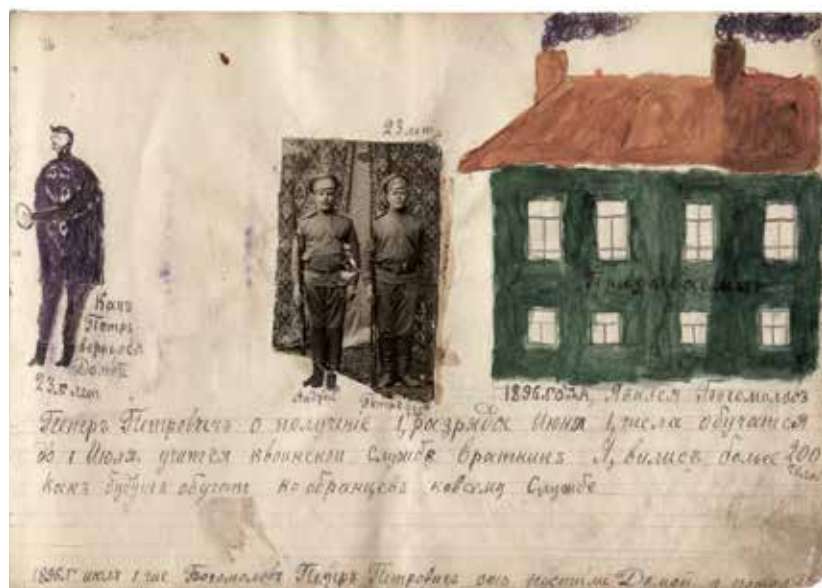 23 лет
Какъ
Петръ
вернулся
Домой
23.5 лет
Андрей
1896 года, Явился Богомоловъ
Петръ Петровичъ о получение 1, разряда Июня 1, числа обучатся
до 1 Июля. учится квоинской служба Враткинъ Я, вилисъ более 200
какъ будутъ обучат нообранцевъ ковсему Службе
1896 г июль 1 чис Богомоловъ Петръ Петровичъ Домой